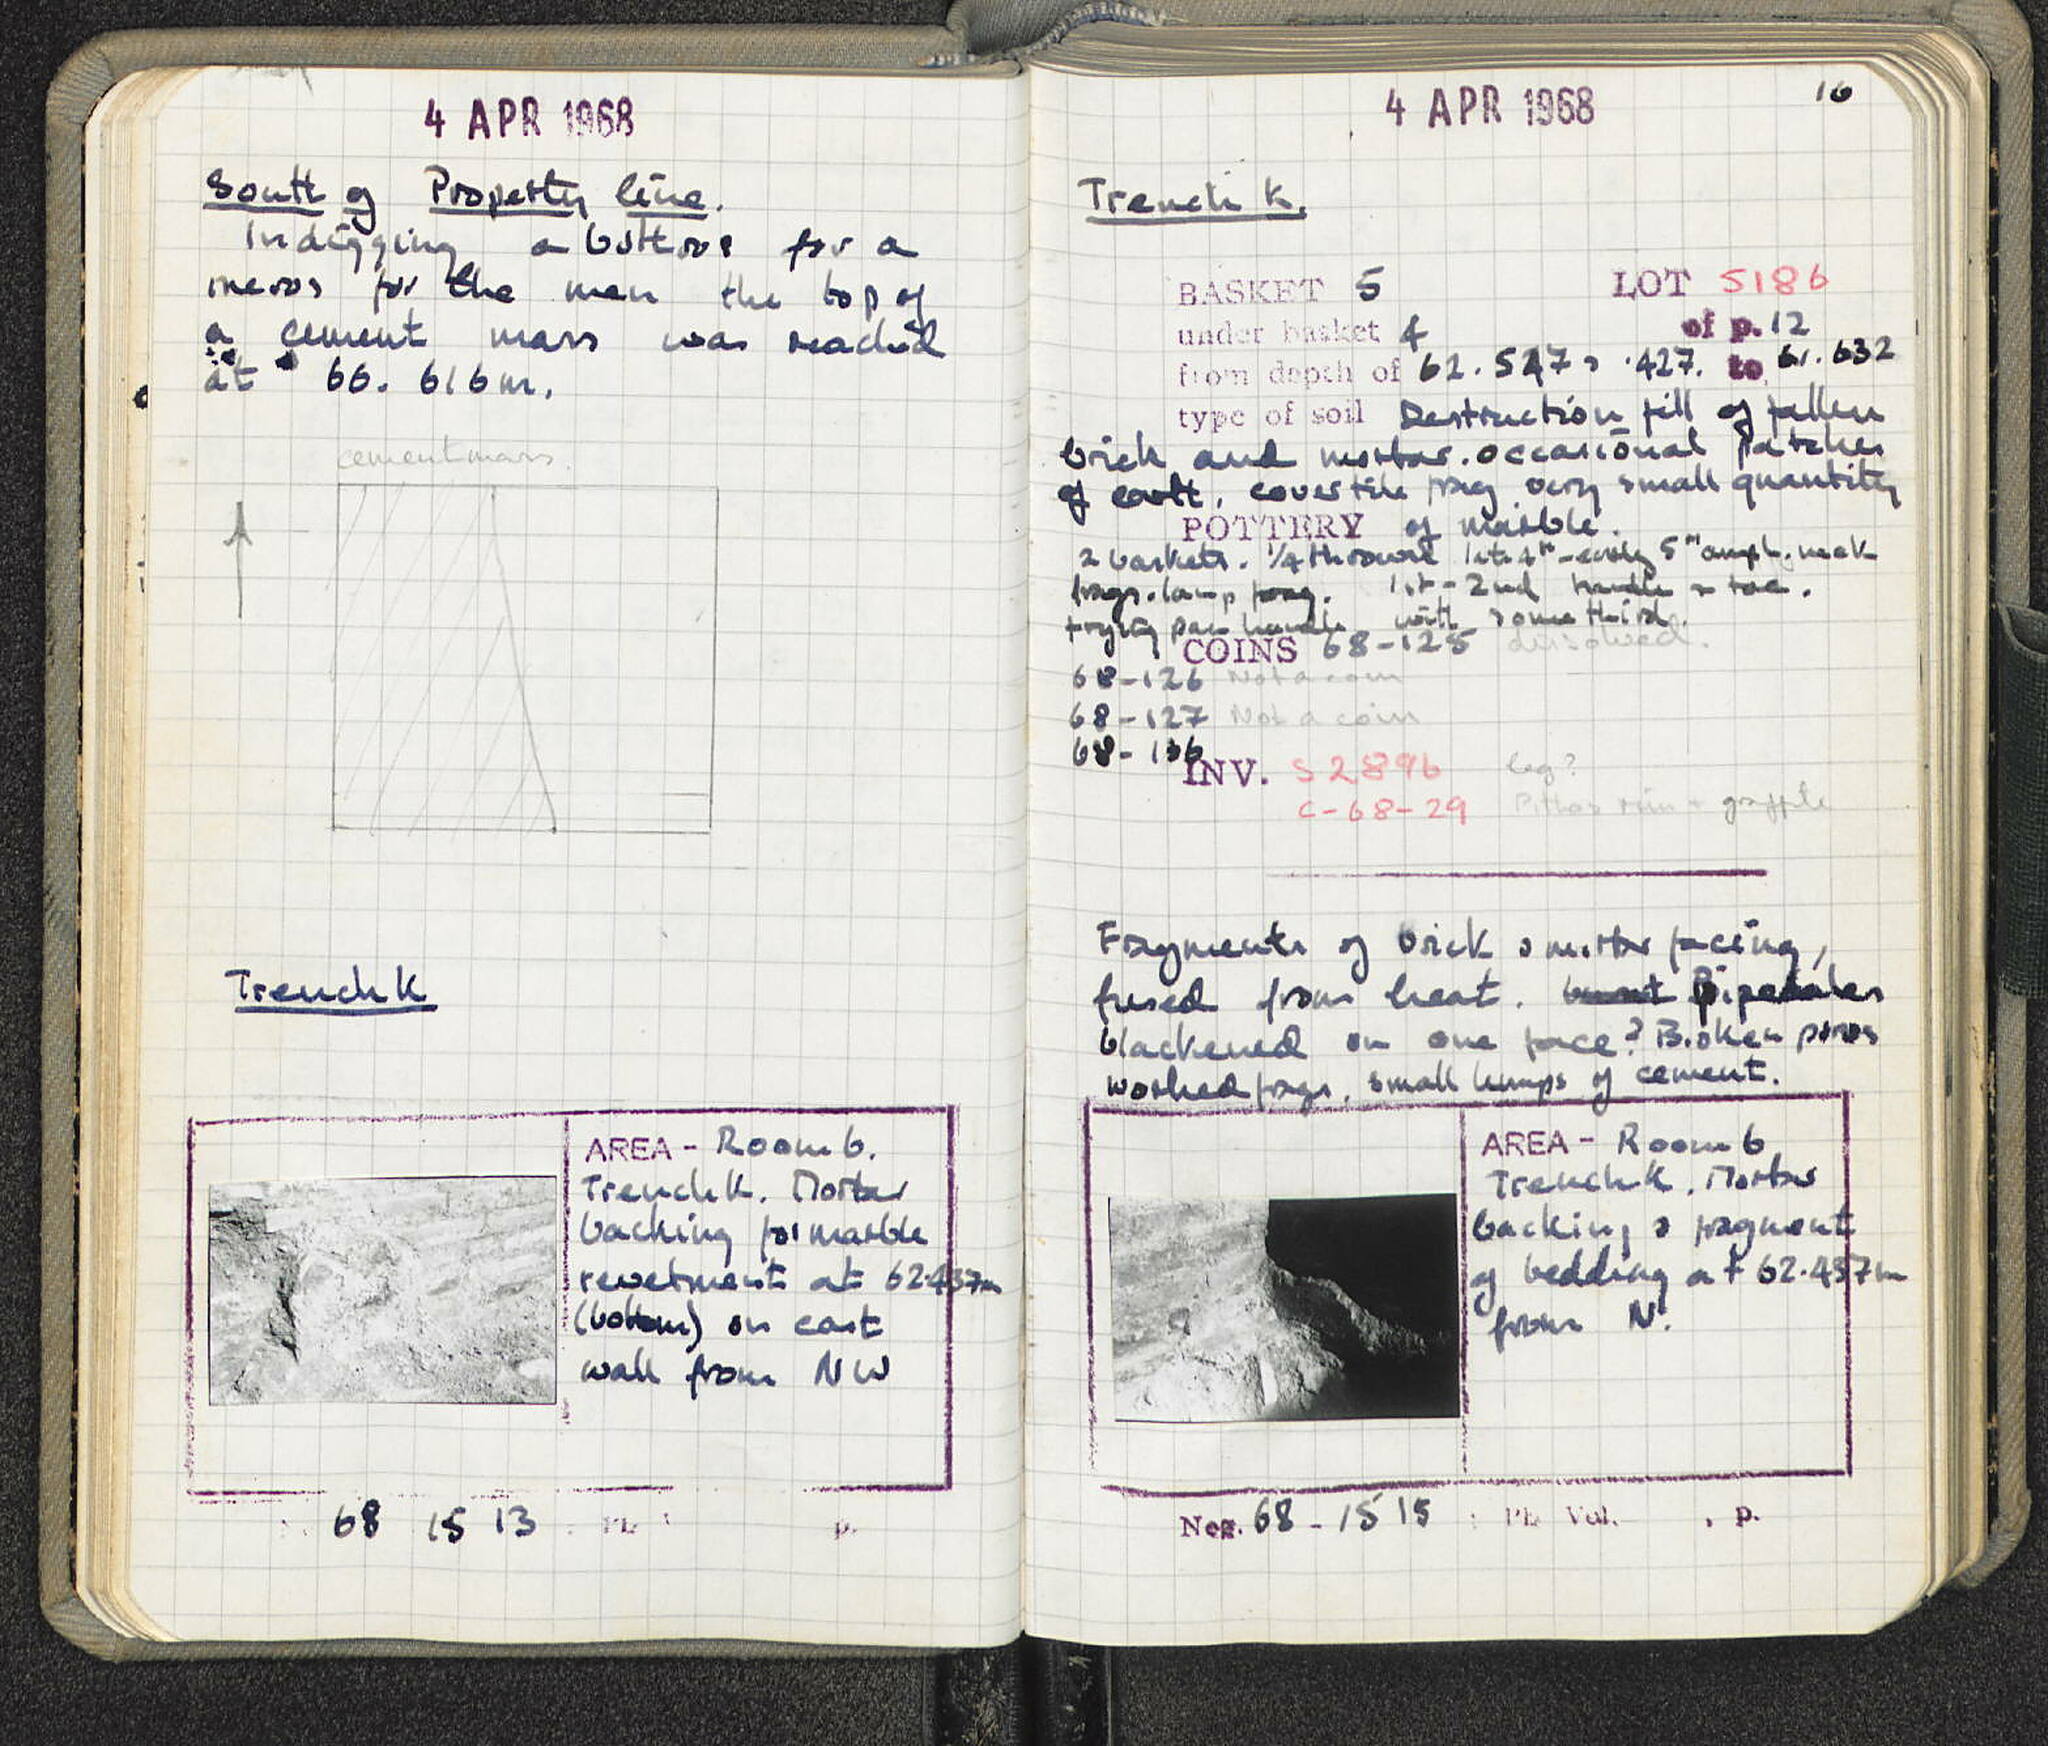 4 APR 1968
South of Property line.
In digging a bothros for a
meros for the men the top of
a cement mass was reached
at 66. 616m.
cement mass
Trench K
AREA - Room 6.
Trench K. Mortar
backing for marble
revetment at 62.437m
(bottom) on east
wall from NW
68 15 13
p.
4 APR 1968
16
Trench K.
BASKET 5 LOT 5186
under basket 4 of p. 12
from depth of 62.547 .427. to 61.632
type of soil Destruction fill of fallen
brick and mortar. occasional patches
of earth, cover tile frag very small quantity
POTTERY of marble.
2 baskets. 1/4 thrown late 4th - early 5th amph. neck
frags. lamp frag. 1st - 2nd handle & toe.
frying pan handle with some third.
COINS 68-125 dissolved.
68-126 Not a coin
68-127 Not a coin
68-136
INV. S 2896 leg?
C-68-29 Pithos rim + grapple
Fragments of brick & mortar facing,
fused from heat. burnt Bipedales
blackened on one face? Broken poros
worked frags. small lumps of cement.
AREA - Room 6
Trench K. Mortar
backing & fragment
of bedding at 62.437m
from N.
Neg. 68 - 15 15 : Ph Vol. , p.